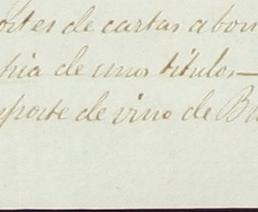 ortes de cartas abon
hia de unos titulos—
mporte de vino de Bu